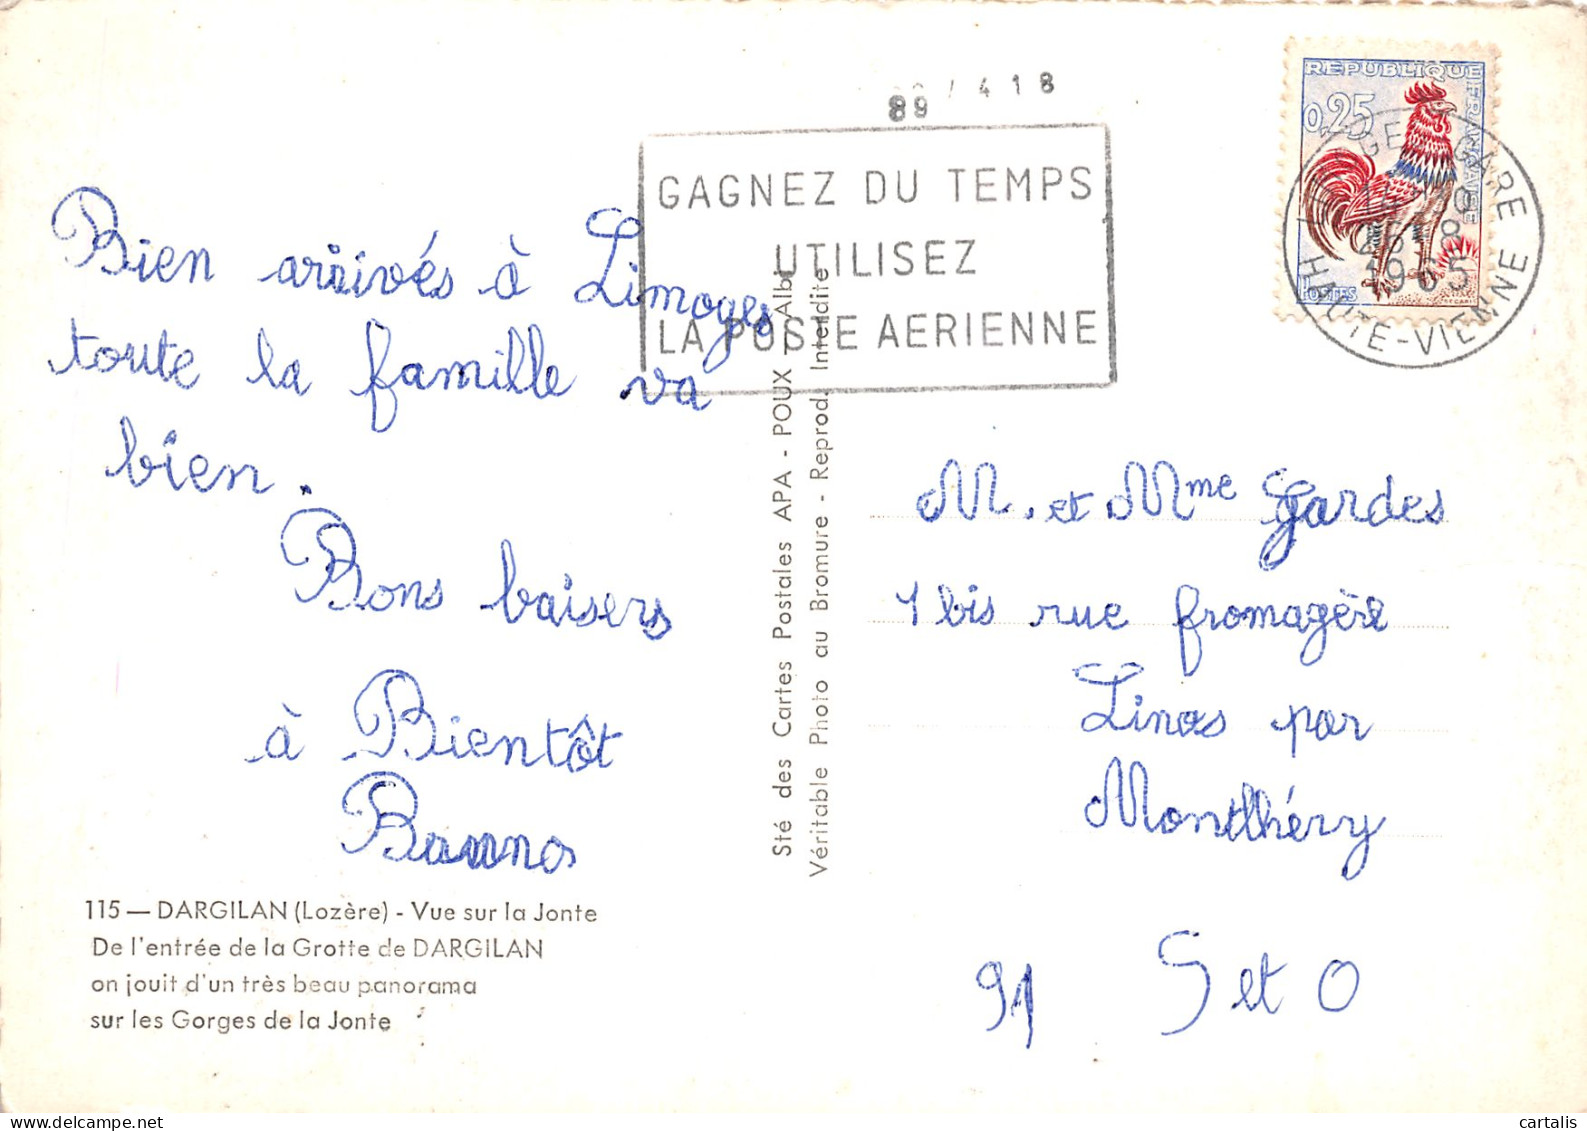 89 / 4 1 8
89
GAGNEZ DU TEMPS
UTILISEZ
LA POSTE AERIENNE
REPUBLIQUE FRANÇAISE
0,25
POSTES
LIMOGES GARE
26 - 8
1965
HAUTE-VIENNE
Bien arrivés à Limoges
toute la famille va
bien.
Bons baisers
à Bientôt
115 — DARGILAN (Lozère) - Vue sur la Jonte
De l'entrée de la Grotte de DARGILAN
on jouit d'un très beau panorama
sur les Gorges de la Jonte
Sté des Cartes Postales APA - POUX - Albi
Véritable Photo au Bromure - Reprod. Interdite
M. et Mme Gardes
1 bis rue fromagère
Linas par
Montlhéry
91 S et O
cartalis